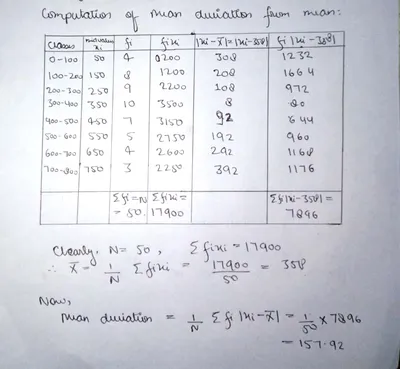 Computation of mean deviation from mean:
Classes midvalue xi fi fixi |xi-x̄|=|xi-358| fi|xi-358|
0-100 50 4 0200 308 1232
100-200 150 8 1200 208 1664
200-300 250 9 2200 108 972
300-400 350 10 3500 8 80
400-500 450 7 3150 92 644
500-600 550 5 2750 192 960
600-700 650 4 2600 292 1168
700-800 750 3 2250 392 1176
Σfi=N Σfixi= Σfi|xi-358|=
= 50. 17900 7896
Clearly, N= 50, Σfixi = 17900
∴ x̄ = 1/N Σfixi = 17900/50 = 358
Now,
Mean deviation = 1/N Σfi|xi-x̄| = 1/50 × 7896
= 157.92